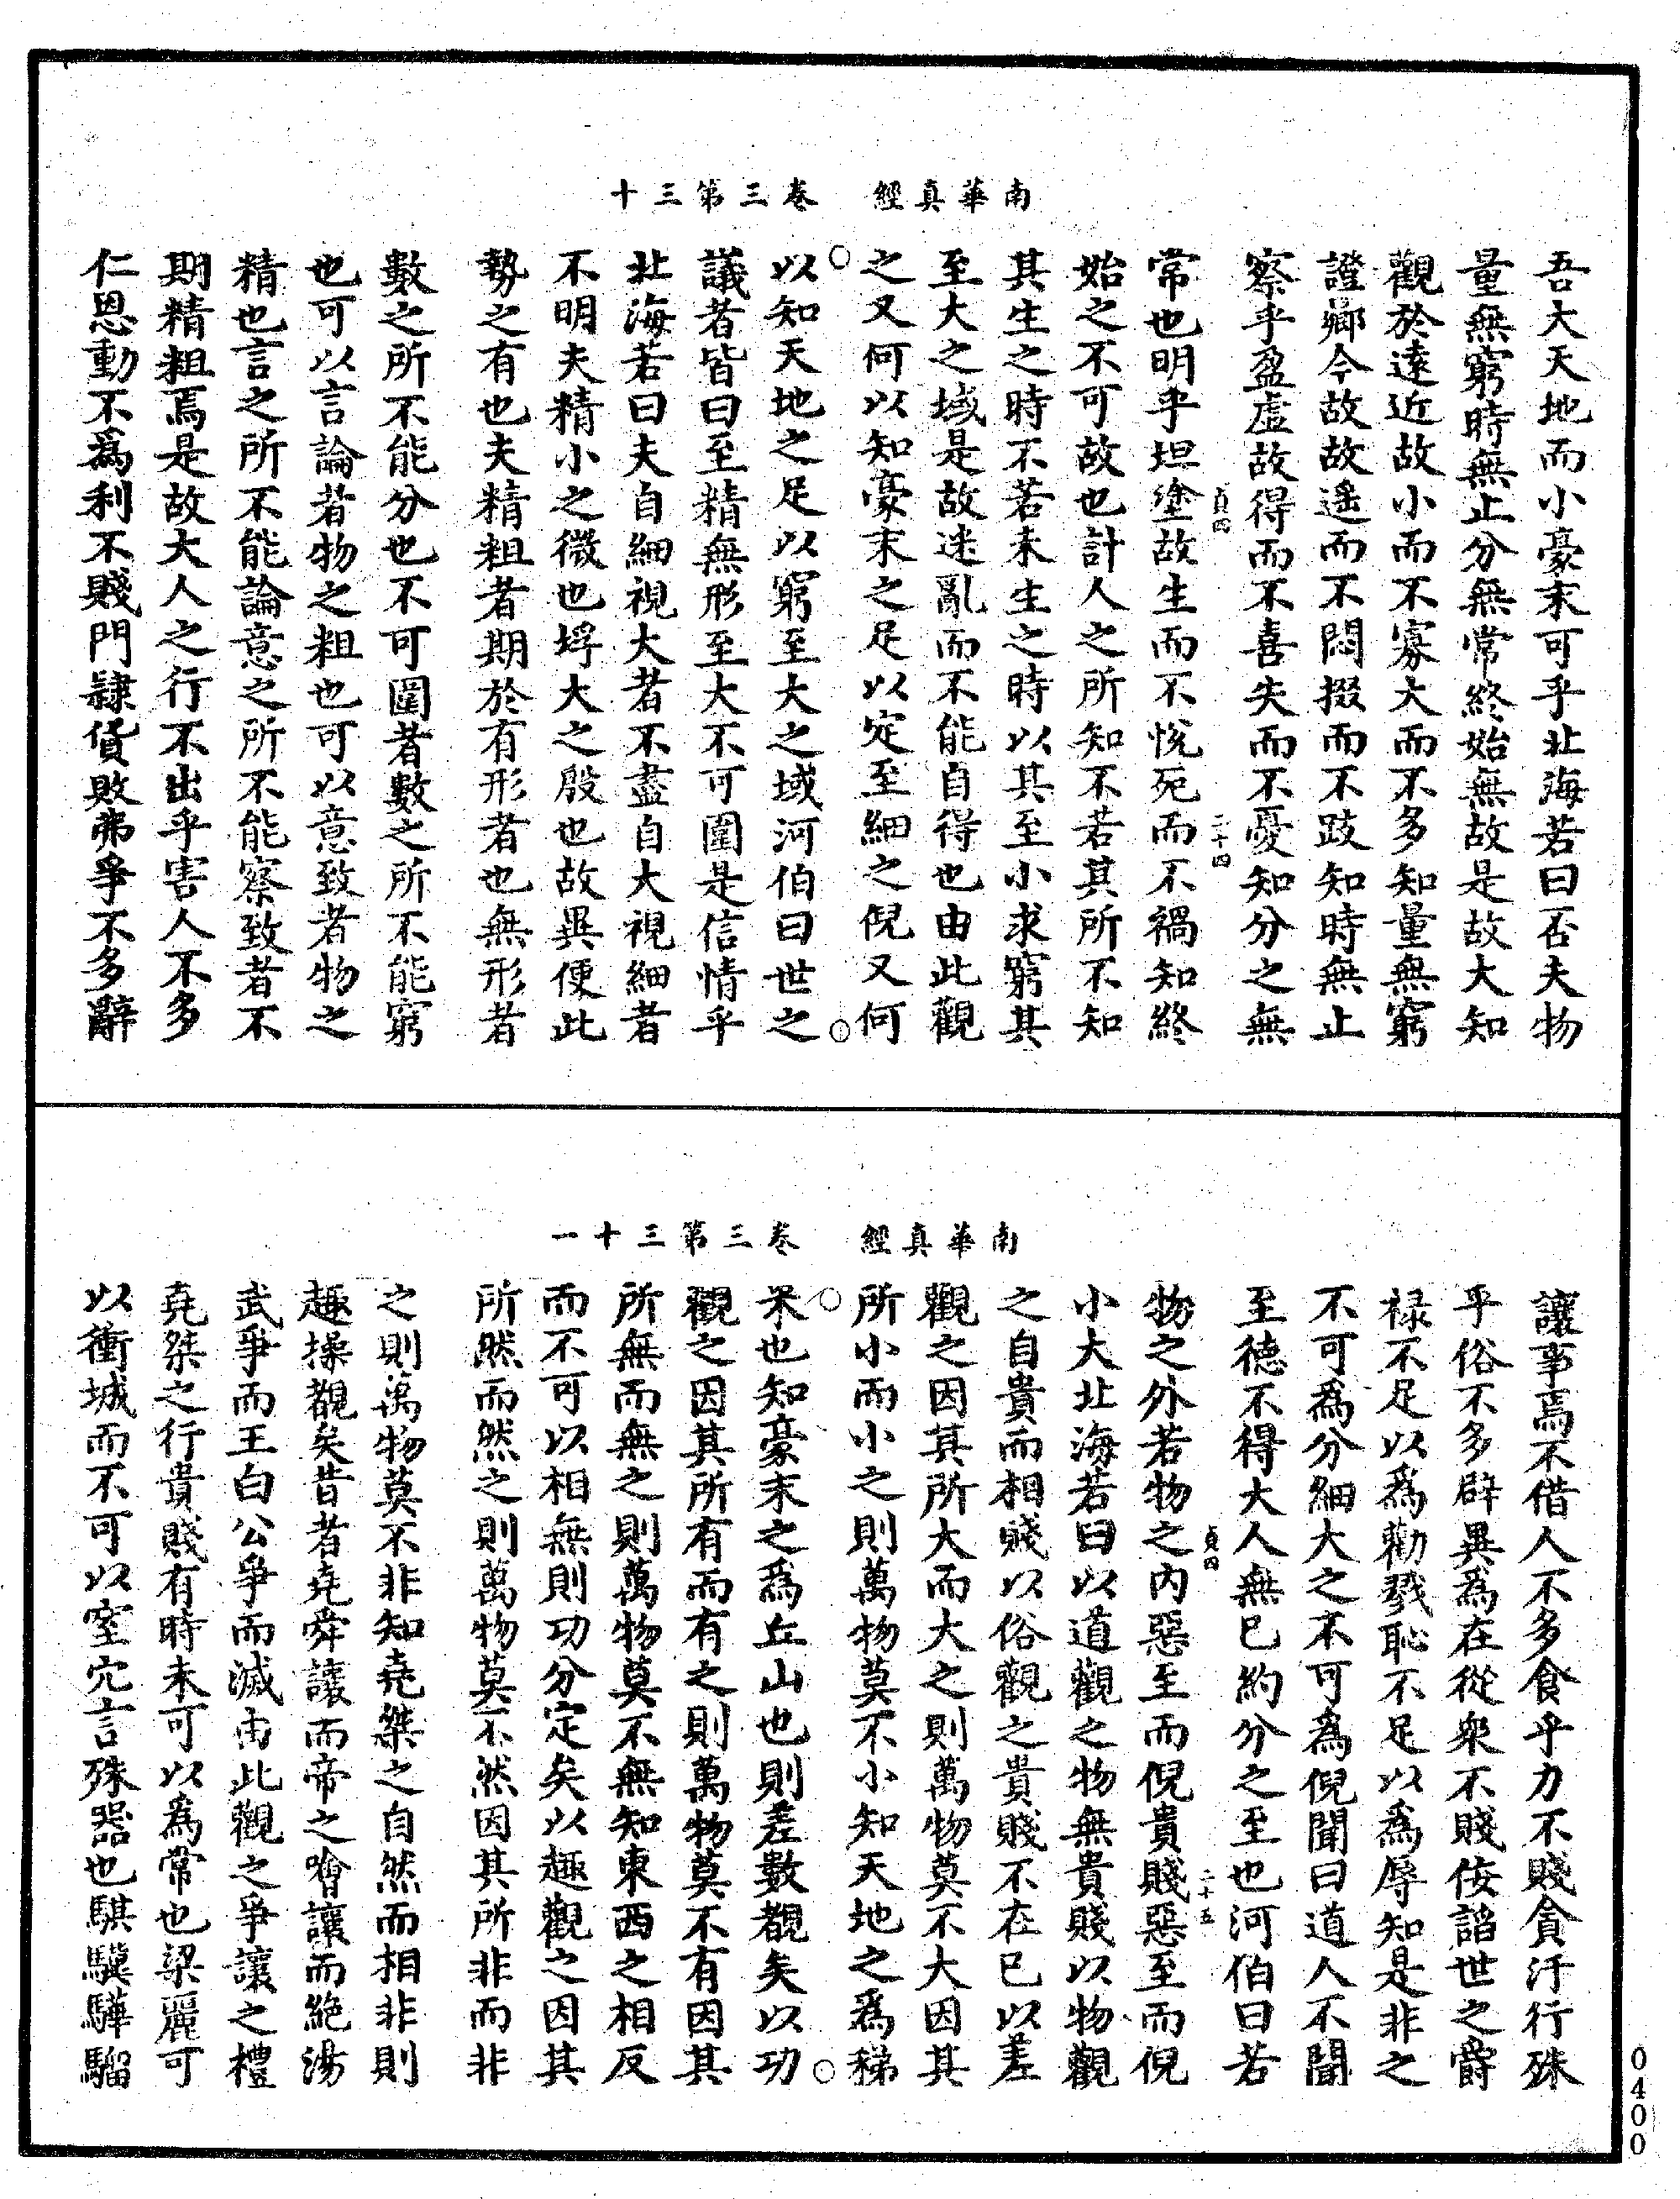 南華真經　卷三第三十
吾大天地而小豪末可乎北海若曰否夫物
量無窮時無止分無常終始無故是故大知
觀於遠近故小而不寡大而不多知量無窮
證曏今故故遥而不悶掇而不跂知時無止
察乎盈虛故得而不喜失而不憂知分之無
貞四
二十四
常也明乎坦塗故生而不悅死而不禍知終
始之不可故也計人之所知不若其所不知
其生之時不若未生之時以其至小求窮其
至大之域是故迷亂而不能自得也由此觀
之又何以知豪末之足以定至細之倪又何
以知天地之足以窮至大之域河伯曰世之
議者皆曰至精無形至大不可圍是信情乎
北海若曰夫自細視大者不盡自大視細者
不明夫精小之微也垺大之殷也故異便此
勢之有也夫精粗者期於有形者也無形者
數之所不能分也不可圍者數之所不能窮
也可以言論者物之粗也可以意致者物之
精也言之所不能論意之所不能察致者不
期精粗焉是故大人之行不出乎害人不多
仁恩動不為利不賤門隸貨敗弗爭不多辭
南華真經　卷三第三十一
讓事焉不借人不多食乎力不賤貪汙行殊
乎俗不多辟異為在從衆不賤佞諂世之爵
祿不足以為勸戮恥不足以為辱知是非之
不可為分細大之不可為倪聞曰道人不聞
至德不得大人無已約分之至也河伯曰若
貞四
二十五
物之外若物之內惡至而倪貴賤惡至而倪
小大北海若曰以道觀之物無貴賤以物觀
之自貴而相賤以俗觀之貴賤不在已以差
觀之因其所大而大之則萬物莫不大因其
所小而小之則萬物莫不小知天地之為稊
米也知豪末之為丘山也則差數覩矣以功
觀之因其所有而有之則萬物莫不有因其
所無而無之則萬物莫不無知東西之相反
而不可以相無則功分定矣以趣觀之因其
所然而然之則萬物莫不然因其所非而非
之則萬物莫不非知堯桀之自然而相非則
趣操覩矣昔者堯舜讓而帝之噲讓而絕湯
武爭而王白公爭而滅由此觀之爭讓之禮
堯桀之行貴賤有時未可以為常也梁麗可
以衝城而不可以窒穴言殊器也騏驥驊騮
0400